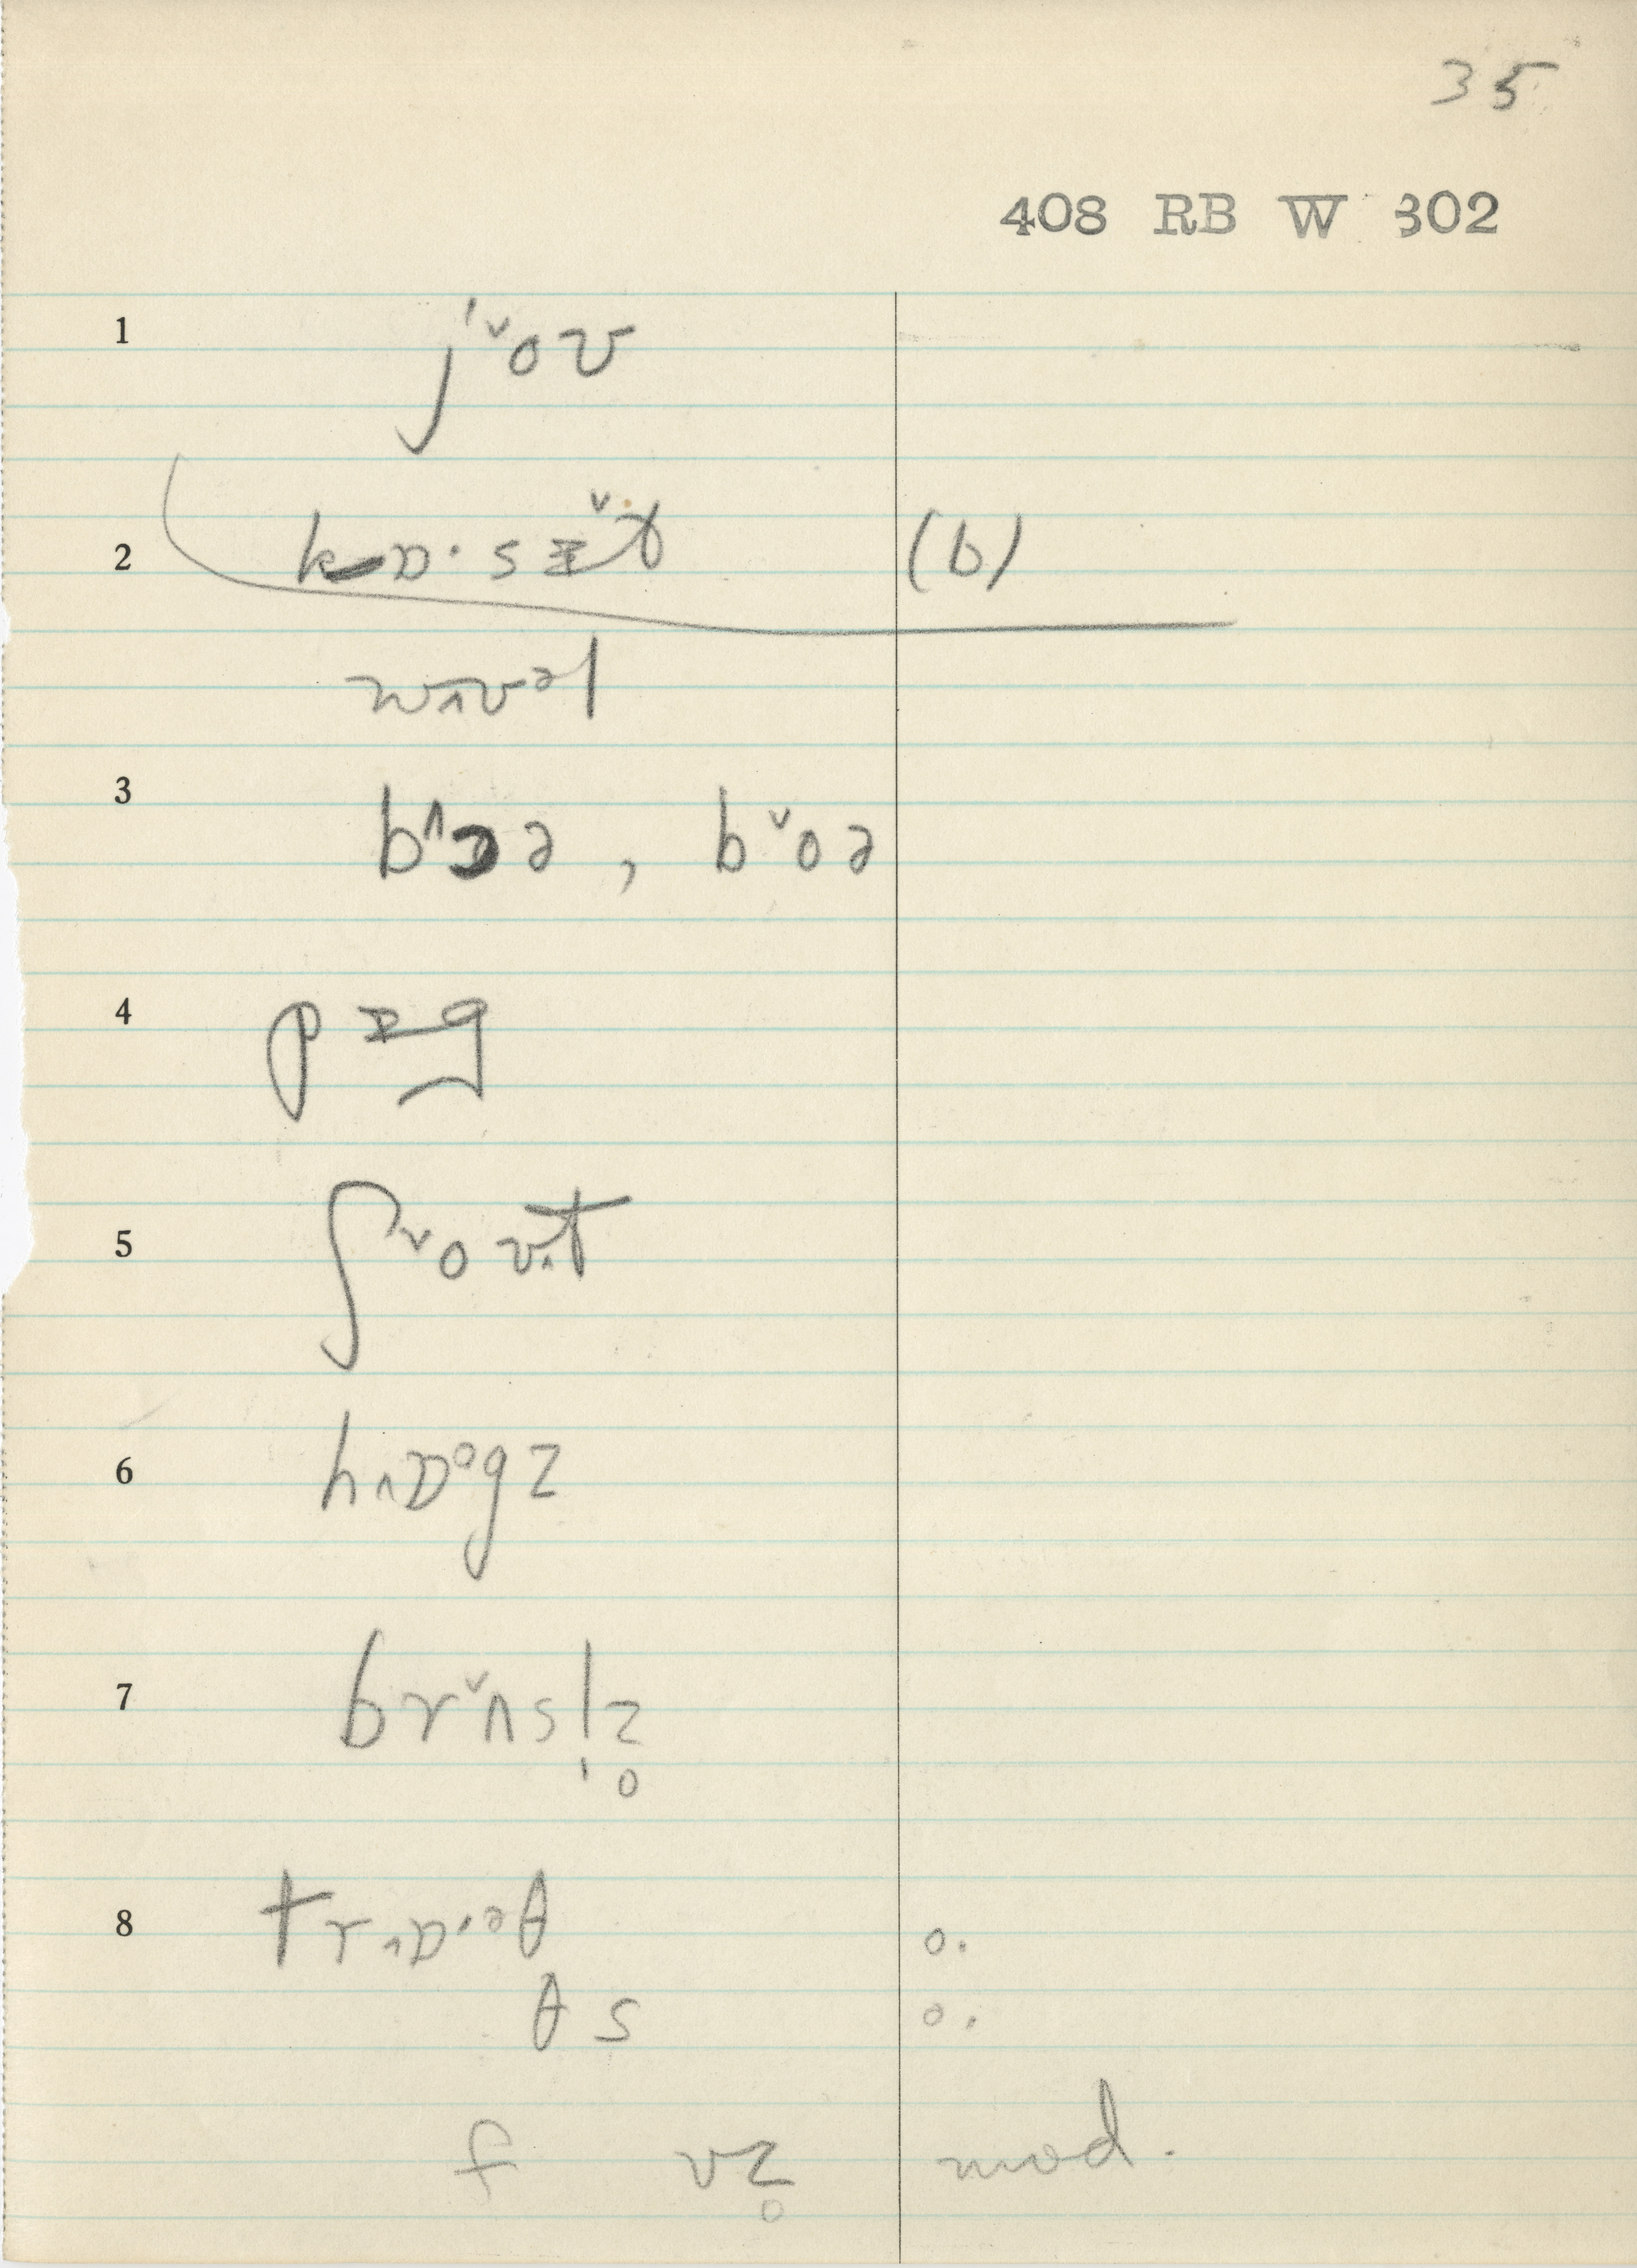 35
408 RB W 302
1 j'ˇov
2 kɒ·sɪˇt (b)
wʌvəl
3 b^ɔə, bˇoə
4 pɪg
5 ʃˇovʌt
6 h‸ɒᵒgz
7 brˇʌsl̩z̥
8 tr‸ɒ·ᵊθ o.
θs o.
f vz̥ mod.